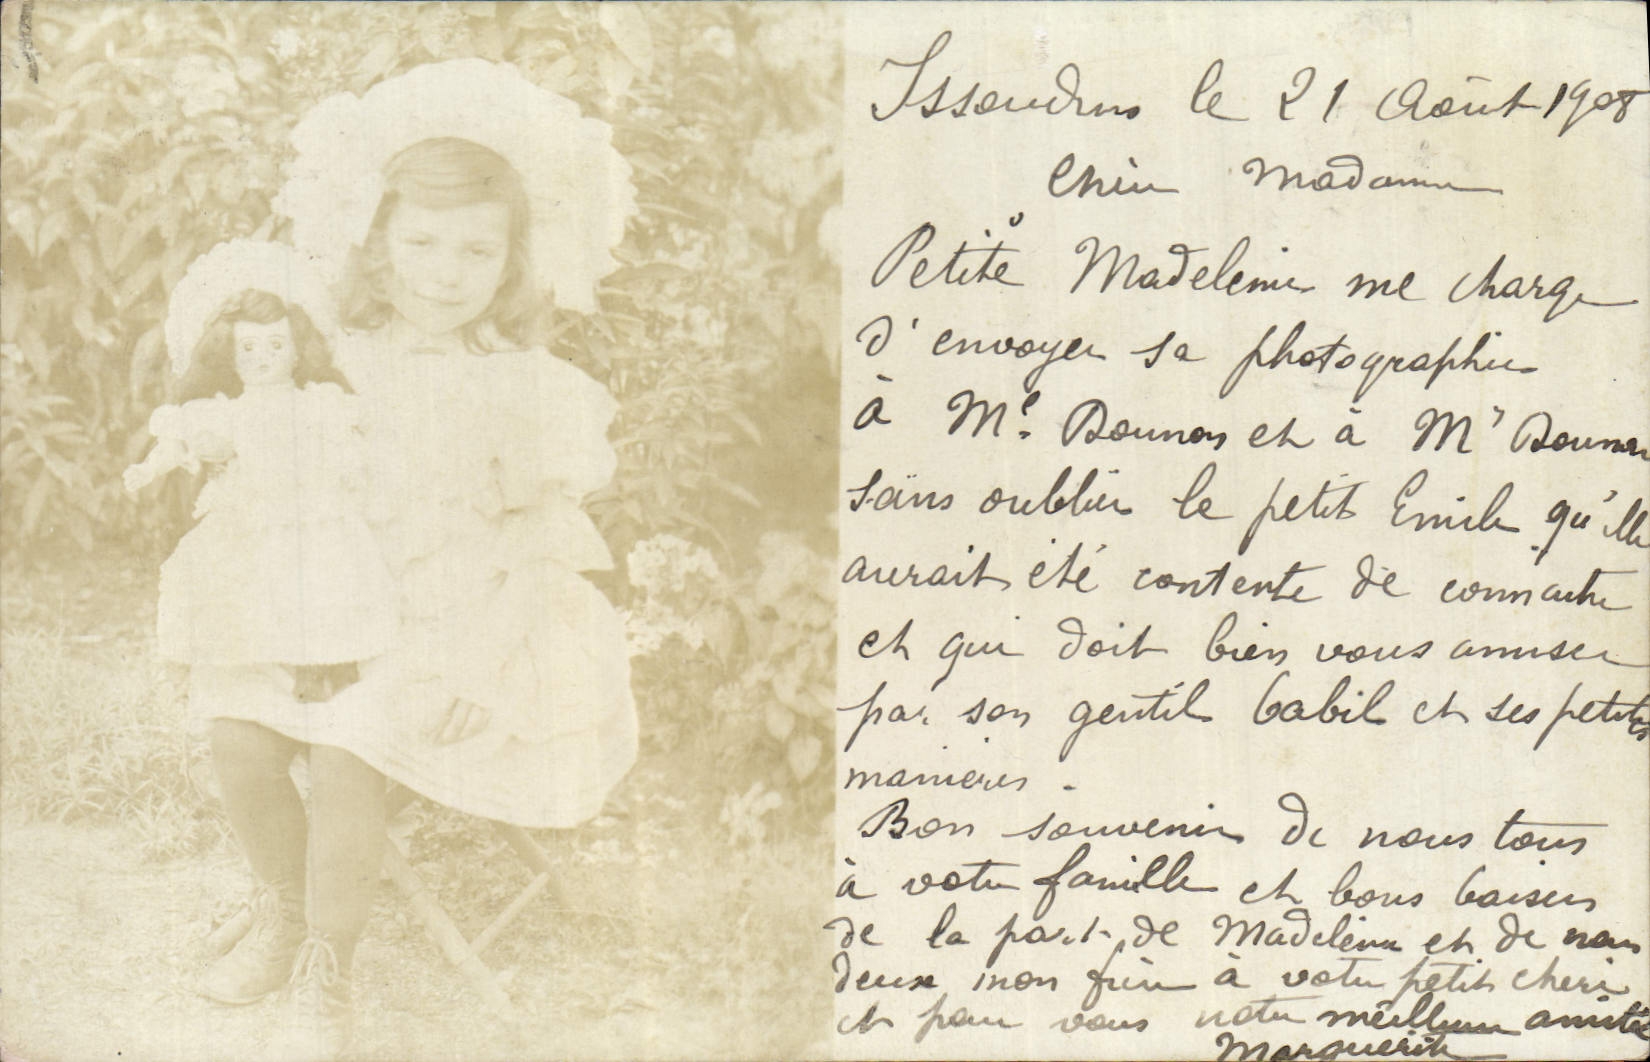 Issoudun le 21 Août 1908
Chère Madame
Petite Madeleine me charge
d'envoyer sa photographie
à Me. et à Mr
sans oublier le petit Emile qu'elle
aurait été contente de connaitre
et qui doit bien vous amuser
par son gentil babil et ses petites
manières.
Bon souvenir de nous tous
à votre famille et bons baisers
de la part de Madeleine et de nous
deux mon frère à votre petit cheri
et pour vous notre meilleure amitié
Marguerite